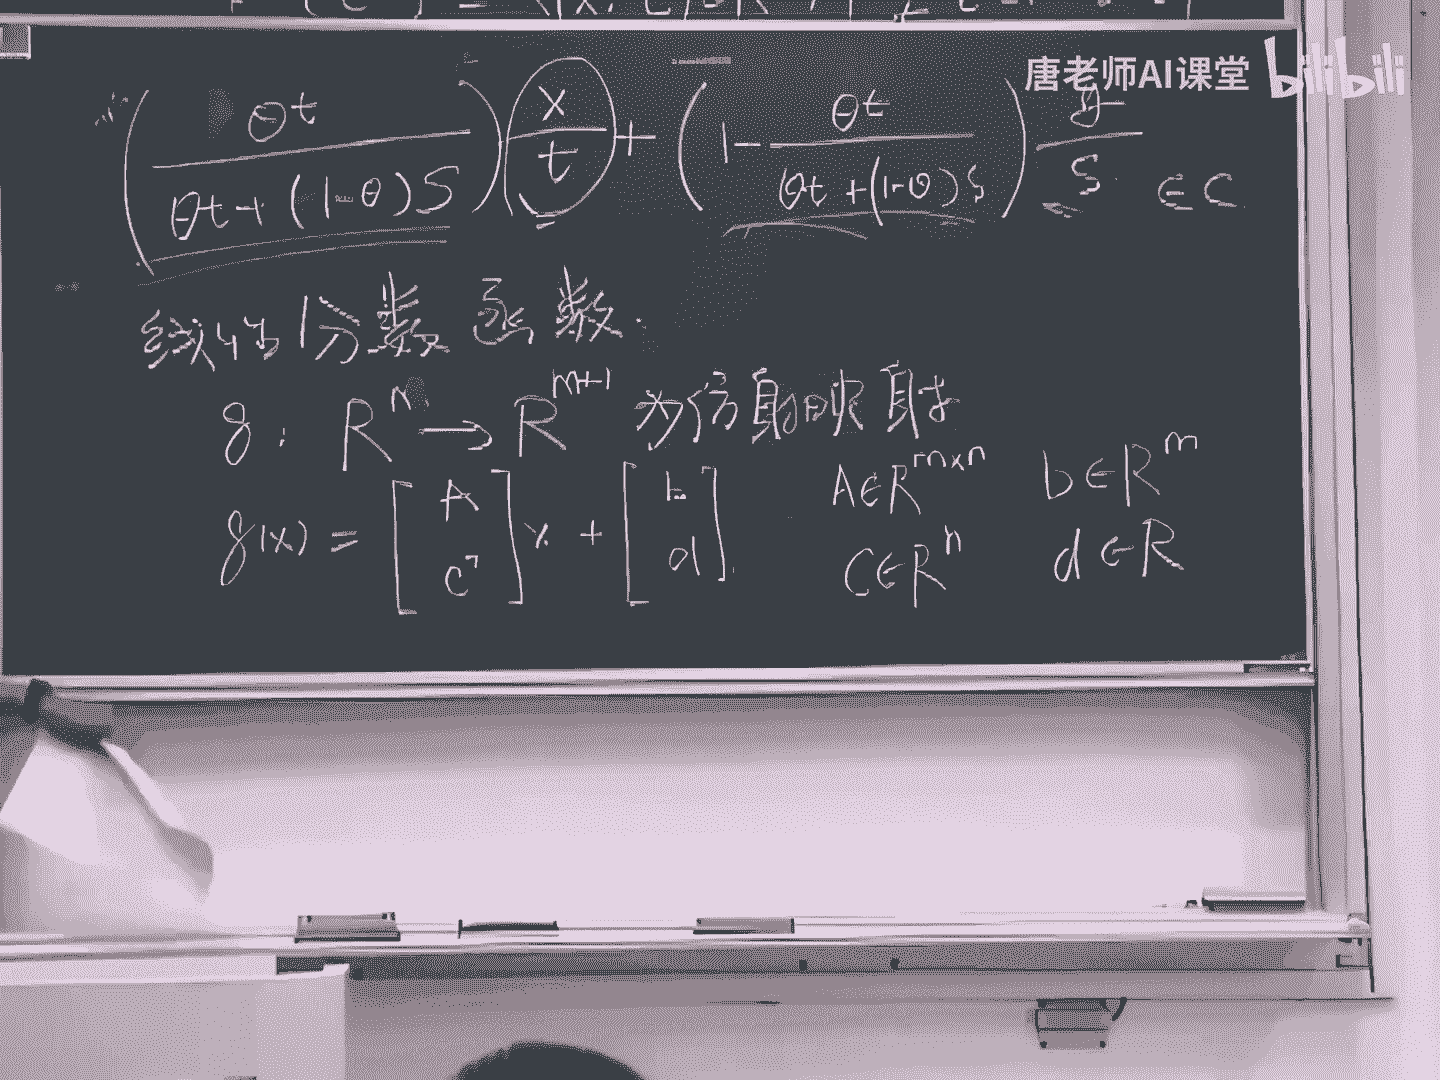 唐老师AI课堂 bilibili
(θt / (θt + (1-θ)S)) (x / t) + (1 - θt / (θt + (1-θ)S)) y / S ∈ C
线性分数函数.
g: R^n → R^{m+1} 为仿射映射
g(x) = [A; c^T] x + [b; d]. A∈R^{m×n} b∈R^m
C∈R^n d∈R